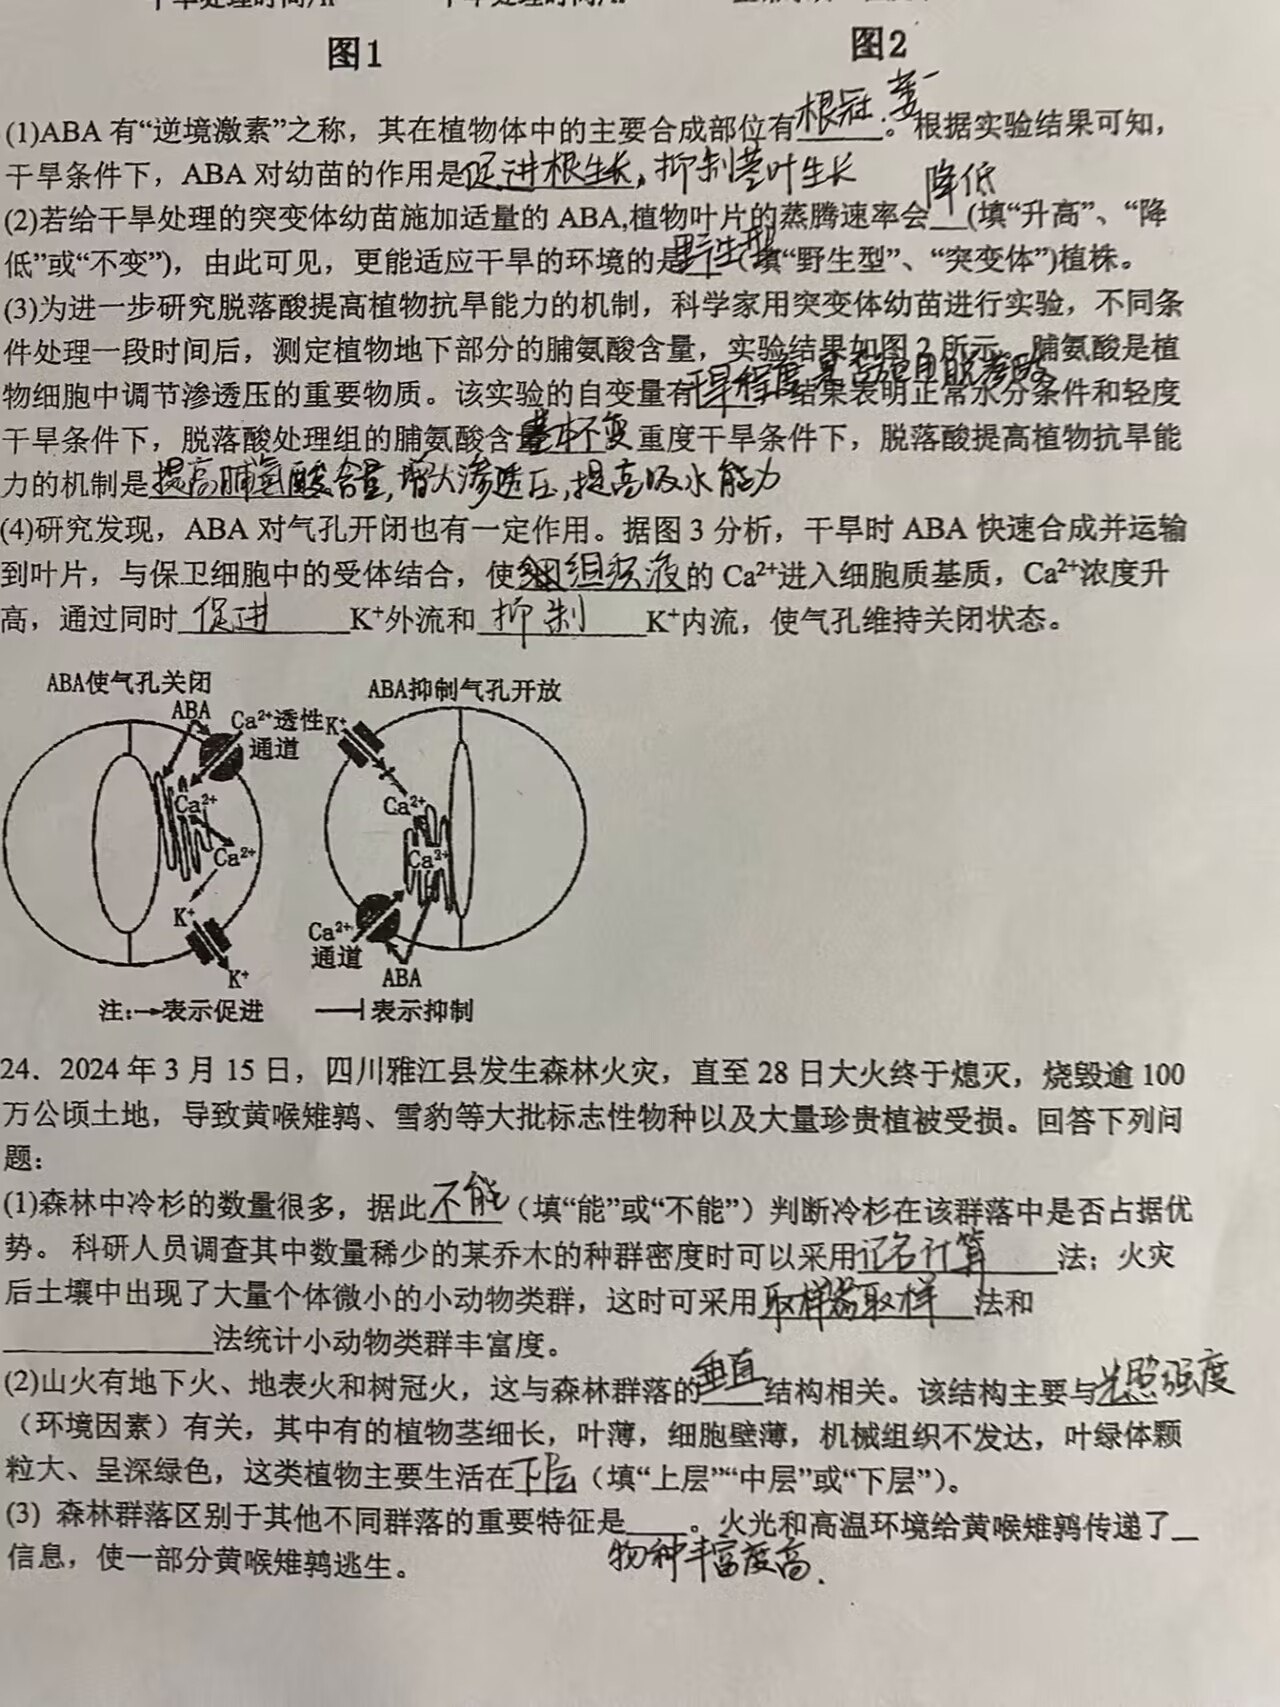 图1
图2
(1)ABA有“逆境激素”之称，其在植物体中的主要合成部位有根冠.萎一。根据实验结果可知，
干旱条件下，ABA对幼苗的作用是促进根生长，抑制茎叶生长
(2)若给干旱处理的突变体幼苗施加适量的ABA,植物叶片的蒸腾速率会降低(填“升高”、“降
低”或“不变”)，由此可见，更能适应干旱的环境的是野生型(填“野生型”、“突变体”)植株。
(3)为进一步研究脱落酸提高植物抗旱能力的机制，科学家用突变体幼苗进行实验，不同条
件处理一段时间后，测定植物地下部分的脯氨酸含量，实验结果如图2所示。脯氨酸是植
物细胞中调节渗透压的重要物质。该实验的自变量有干旱程度 是否施用脱落酸 结果表明正常水分条件和轻度
干旱条件下，脱落酸处理组的脯氨酸含量基本不变 重度干旱条件下，脱落酸提高植物抗旱能
力的机制是提高脯氨酸含量,增大渗透压,提高吸水能力
(4)研究发现，ABA对气孔开闭也有一定作用。据图3分析，干旱时ABA快速合成并运输
到叶片，与保卫细胞中的受体结合，使组织液的Ca²⁺进入细胞质基质，Ca²⁺浓度升
高，通过同时 促进 K⁺外流和 抑制 K⁺内流，使气孔维持关闭状态。
ABA使气孔关闭
ABA抑制气孔开放
ABA
Ca²⁺透性
通道
K⁺
Ca²⁺
Ca²⁺
Ca²⁺
Ca²⁺
K⁺
Ca²⁺
通道
K⁺
ABA
注:→表示促进 ⊣表示抑制
24．2024年3月15日，四川雅江县发生森林火灾，直至28日大火终于熄灭，烧毁逾100
万公顷土地，导致黄喉雉鹑、雪豹等大批标志性物种以及大量珍贵植被受损。回答下列问
题：
(1)森林中冷杉的数量很多，据此不能（填“能”或“不能”）判断冷杉在该群落中是否占据优
势。 科研人员调查其中数量稀少的某乔木的种群密度时可以采用记名计算法；火灾
后土壤中出现了大量个体微小的小动物类群，这时可采用取样器取样法和
____________法统计小动物类群丰富度。
(2)山火有地下火、地表火和树冠火，这与森林群落的垂直结构相关。该结构主要与光照强度
（环境因素）有关，其中有的植物茎细长，叶薄，细胞壁薄，机械组织不发达，叶绿体颗
粒大、呈深绿色，这类植物主要生活在下层（填“上层”“中层”或“下层”）。
(3) 森林群落区别于其他不同群落的重要特征是____。火光和高温环境给黄喉雉鹑传递了__
信息，使一部分黄喉雉鹑逃生。
物种丰富度高.